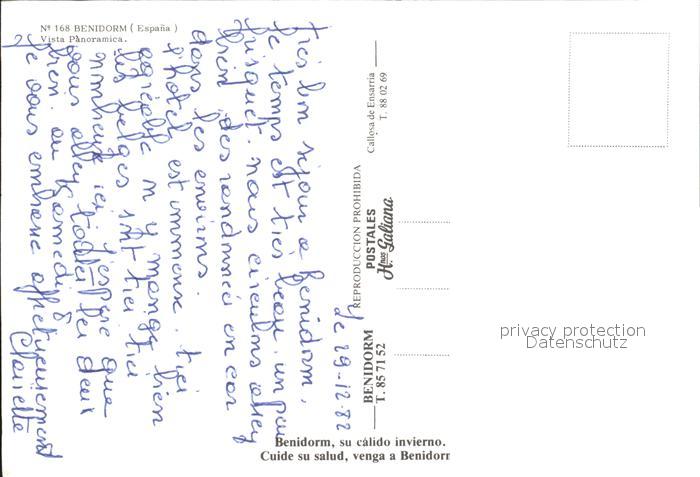 Nº 168 BENIDORM ( España )
Vista Panoramica.
le 29-12-82
très bon séjour a Benidorm,
le temps est très beau. un peu
frisquet. nous circulons assez
bien des randonnées en car
dans les environs.
l'hotel est immense. très
agréable on y mange bien
les belges sont très très
nombreux ici j'espère que
vous allez toutes les deux
bien. au
je vous embrasse affectueusement
Clairette
BENIDORM
T. 85 71 52
POSTALES
Hnos Galiana
REPRODUCCION PROHIBIDA
Callosa de Ensarria
T. 88 02 69
Benidorm, su cálido invierno.
Cuide su salud, venga a Benidorm
privacy protection
Datenschutz